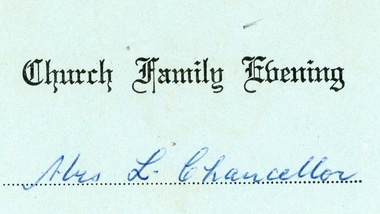 Church Family Evening
Mrs L. Chancellor